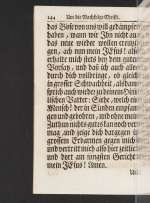 144 Um die Nachfolge Christi.
das Böse von uns will gedämpfet
haben, wann wir Ihn nicht aus
das neue wieder wolten creutzi-
gen; ach nun mein JEsus! also
erhalte mich stets bey dem guten
Vorsatz, und daß ich auch alles
durch dich vollbringe, ob gleich
in grosser Schwachheit, alsdann
sprich auch wieder zu deinem Him̃-
lischen Vatter: Siehe, wieich ein
Mensch! der in Sünden empfan-
gen und gebohren, und ohne mein
Zuthun nichts gutes fan noch ver-
mag, und zeige dich dargegen in
grossem Erbarmen gegen mich
und vertritt mich also hier zeitlich
und dort am jüngsten Gericht
mein JEsus! Amen.